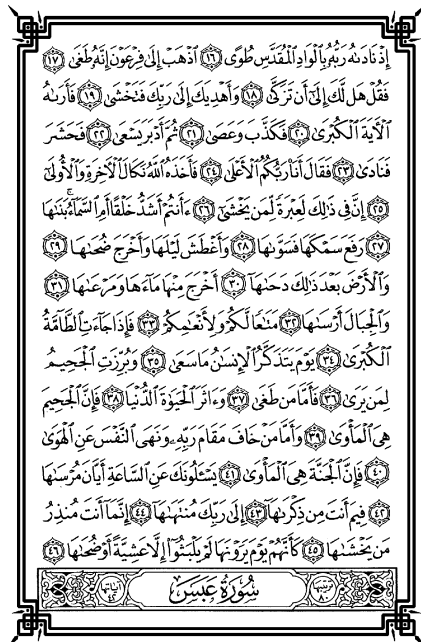 إِذْ نَادَىٰهُ رَبُّهُۥ بِٱلْوَادِ ٱلْمُقَدَّسِ طُوًى ١٦ ٱذْهَبْ إِلَىٰ فِرْعَوْنَ إِنَّهُۥ طَغَىٰ ١٧
فَقُلْ هَل لَّكَ إِلَىٰٓ أَن تَزَكَّىٰ ١٨ وَأَهْدِيَكَ إِلَىٰ رَبِّكَ فَتَخْشَىٰ ١٩ فَأَرَىٰهُ
ٱلْـَٔايَةَ ٱلْكُبْرَىٰ ٢٠ فَكَذَّبَ وَعَصَىٰ ٢١ ثُمَّ أَدْبَرَ يَسْعَىٰ ٢٢ فَحَشَرَ
فَنَادَىٰ ٢٣ فَقَالَ أَنَا۠ رَبُّكُمُ ٱلْأَعْلَىٰ ٢٤ فَأَخَذَهُ ٱللَّهُ نَكَالَ ٱلْـَٔاخِرَةِ وَٱلْأُولَىٰٓ
٢٥ إِنَّ فِى ذَٰلِكَ لَعِبْرَةً لِّمَن يَخْشَىٰٓ ٢٦ ءَأَنتُمْ أَشَدُّ خَلْقًا أَمِ ٱلسَّمَآءُ ۚ بَنَىٰهَا
٢٧ رَفَعَ سَمْكَهَا فَسَوَّىٰهَا ٢٨ وَأَغْطَشَ لَيْلَهَا وَأَخْرَجَ ضُحَىٰهَا ٢٩
وَٱلْأَرْضَ بَعْدَ ذَٰلِكَ دَحَىٰهَآ ٣٠ أَخْرَجَ مِنْهَا مَآءَهَا وَمَرْعَىٰهَا ٣١
وَٱلْجِبَالَ أَرْسَىٰهَا ٣٢ مَتَٰعًا لَّكُمْ وَلِأَنْعَٰمِكُمْ ٣٣ فَإِذَا جَآءَتِ ٱلطَّآمَّةُ
ٱلْكُبْرَىٰ ٣٤ يَوْمَ يَتَذَكَّرُ ٱلْإِنسَٰنُ مَا سَعَىٰ ٣٥ وَبُرِّزَتِ ٱلْجَحِيمُ
لِمَن يَرَىٰ ٣٦ فَأَمَّا مَن طَغَىٰ ٣٧ وَءَاثَرَ ٱلْحَيَوٰةَ ٱلدُّنْيَا ٣٨ فَإِنَّ ٱلْجَحِيمَ
هِىَ ٱلْمَأْوَىٰ ٣٩ وَأَمَّا مَنْ خَافَ مَقَامَ رَبِّهِۦ وَنَهَى ٱلنَّفْسَ عَنِ ٱلْهَوَىٰ
٤٠ فَإِنَّ ٱلْجَنَّةَ هِىَ ٱلْمَأْوَىٰ ٤١ يَسْـَٔلُونَكَ عَنِ ٱلسَّاعَةِ أَيَّانَ مُرْسَىٰهَا
٤٢ فِيمَ أَنتَ مِن ذِكْرَىٰهَآ ٤٣ إِلَىٰ رَبِّكَ مُنتَهَىٰهَآ ٤٤ إِنَّمَآ أَنتَ مُنذِرُ
مَن يَخْشَىٰهَا ٤٥ كَأَنَّهُمْ يَوْمَ يَرَوْنَهَا لَمْ يَلْبَثُوٓا۟ إِلَّا عَشِيَّةً أَوْ ضُحَىٰهَا ٤٦
ترتيبها ٨٠ سُورَةُ عَبَسَ آياتها ٤٢